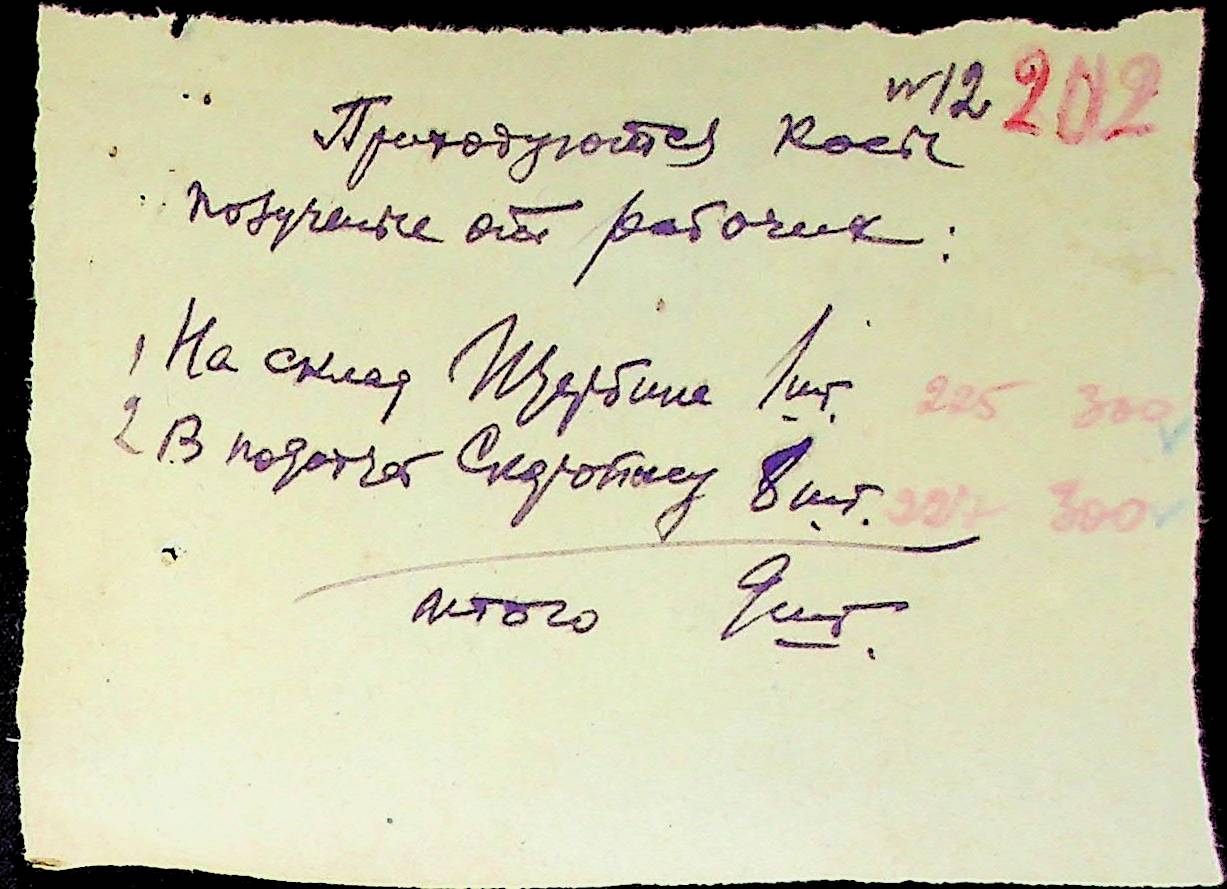 №12 202
Приходуются косы
полученые от рабочих:
1 На склад Щербине 1 шт. 225 300
2 В подотчет 8 шт. 300
итого 9 шт.